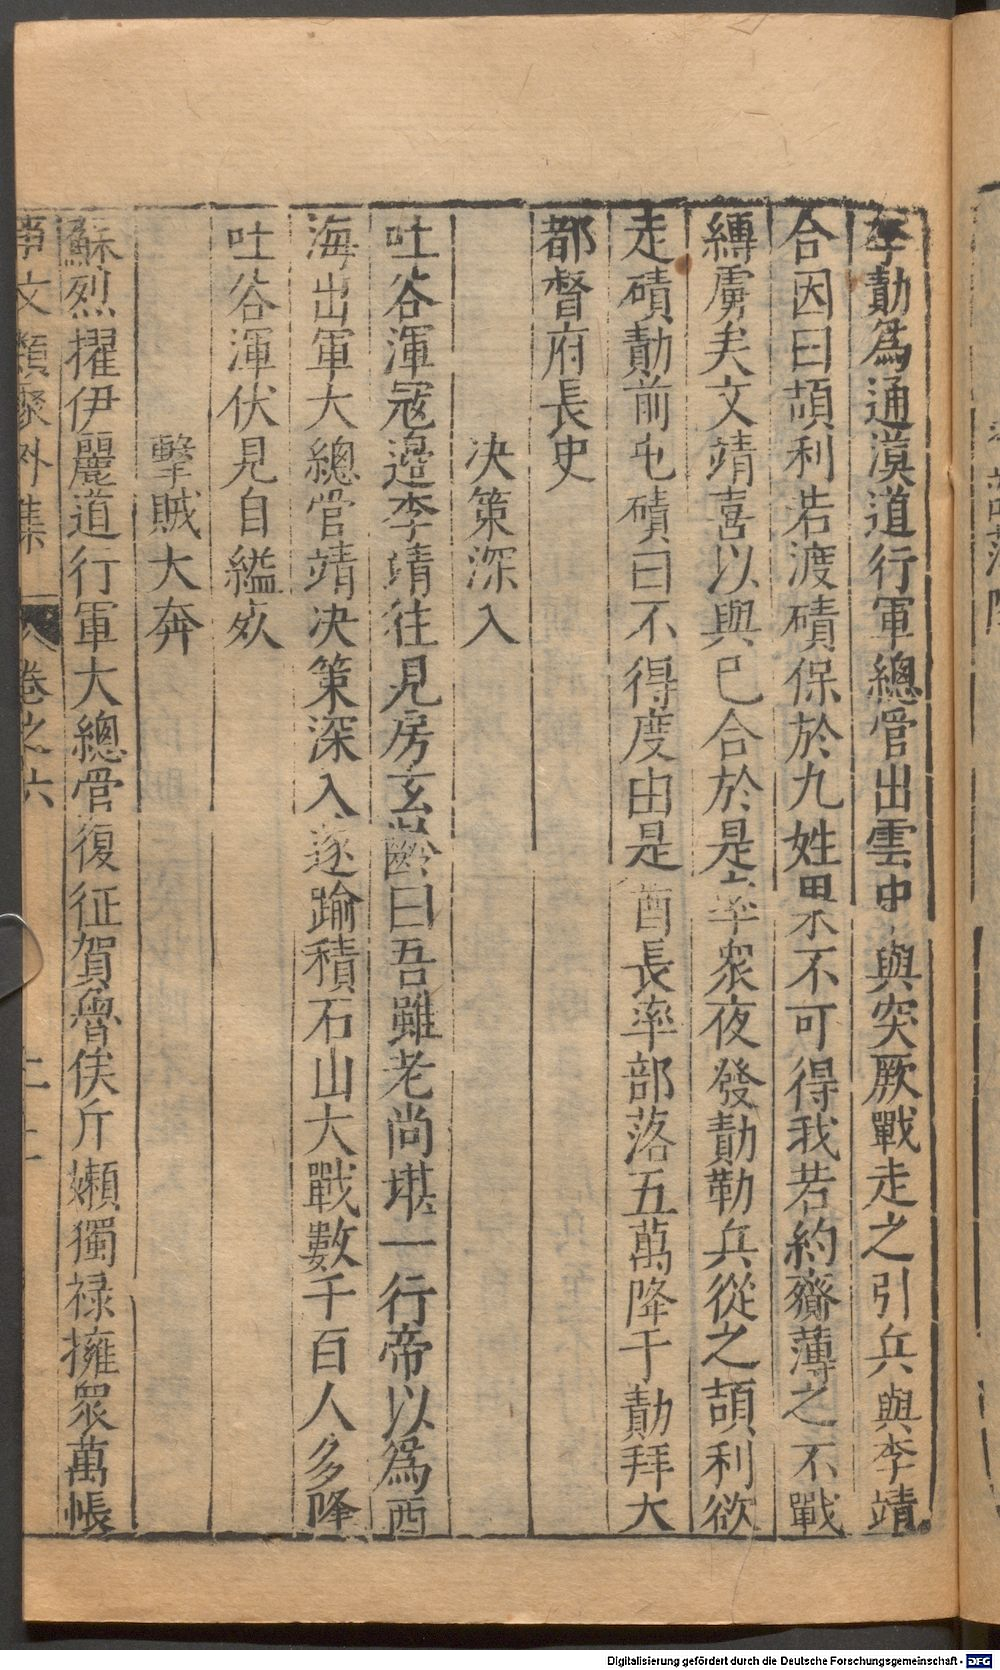 李勣爲通漠道行軍總管出雲中與突厥戰走之引兵與李靖
合因曰頡利若渡磧保於九姓果不可得我若約齎薄之不戰
縛虜矣文靖喜以與已合於是率衆夜發勣勒兵從之頡利欲
走磧勣前屯磧曰不得度由是酋長率部落五萬降于勣拜大
都督府長史
決策深入
吐谷渾冦邉李靖往見房玄齡曰吾雖老尚堪一行帝以爲西
海出軍大總管靖决策深入遂踰積石山大戰數千百人多降
吐谷渾伏見自縊死
擊賊大奔
蘇烈擢伊麗道行軍大總管復征賀魯俟斤嬾獨禄擁衆萬帳
事文類聚外集 卷之六
Digitalisierung gefördert durch die Deutsche Forschungsgemeinschaft - DFG